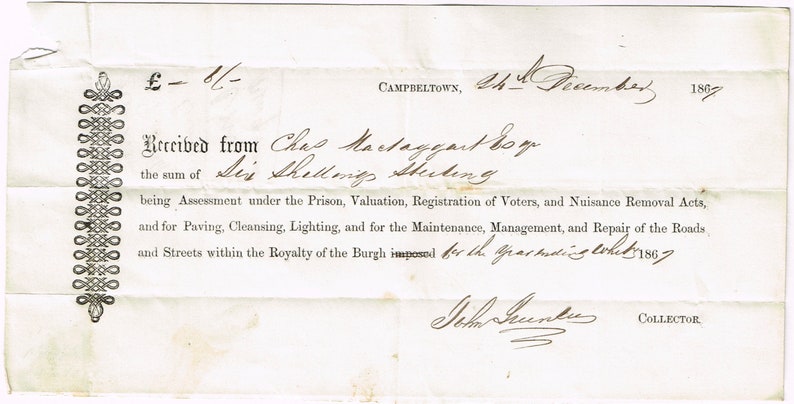 £ – 6/- CAMPBELTOWN, 24th December 1867
Received from Chas Mactaggart Esqr
the sum of Six Shillings Sterling
being Assessment under the Prison, Valuation, Registration of Voters, and Nuisance Removal Acts,
and for Paving, Cleansing, Lighting, and for the Maintenance, Management, and Repair of the Roads
and Streets within the Royalty of the Burgh imposed for the Year ending Whity 1867
John COLLECTOR.